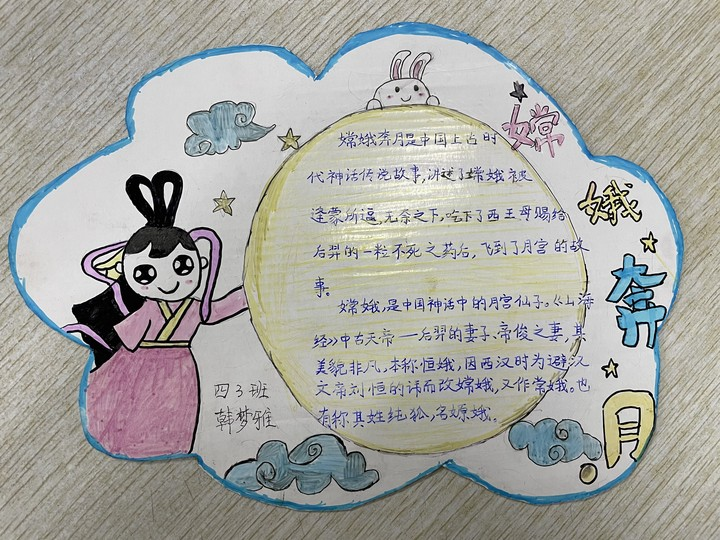 嫦娥奔月
嫦娥奔月是中国上古时
代神话传说故事,讲述了嫦娥被
逢蒙所逼,无奈之下,吃下了西王母赐给
后羿的一粒不死之药后,飞到了月宫的故
事。
嫦娥,是中国神话中的月宫仙子。《山海
经》中古天帝——后羿的妻子、帝俊之妻,其
美貌非凡,本称恒娥,因西汉时为避汉
文帝刘恒的讳而改嫦娥,又作常娥。也
有称其姓纯狐,名嫄娥。
四3班
韩梦雅